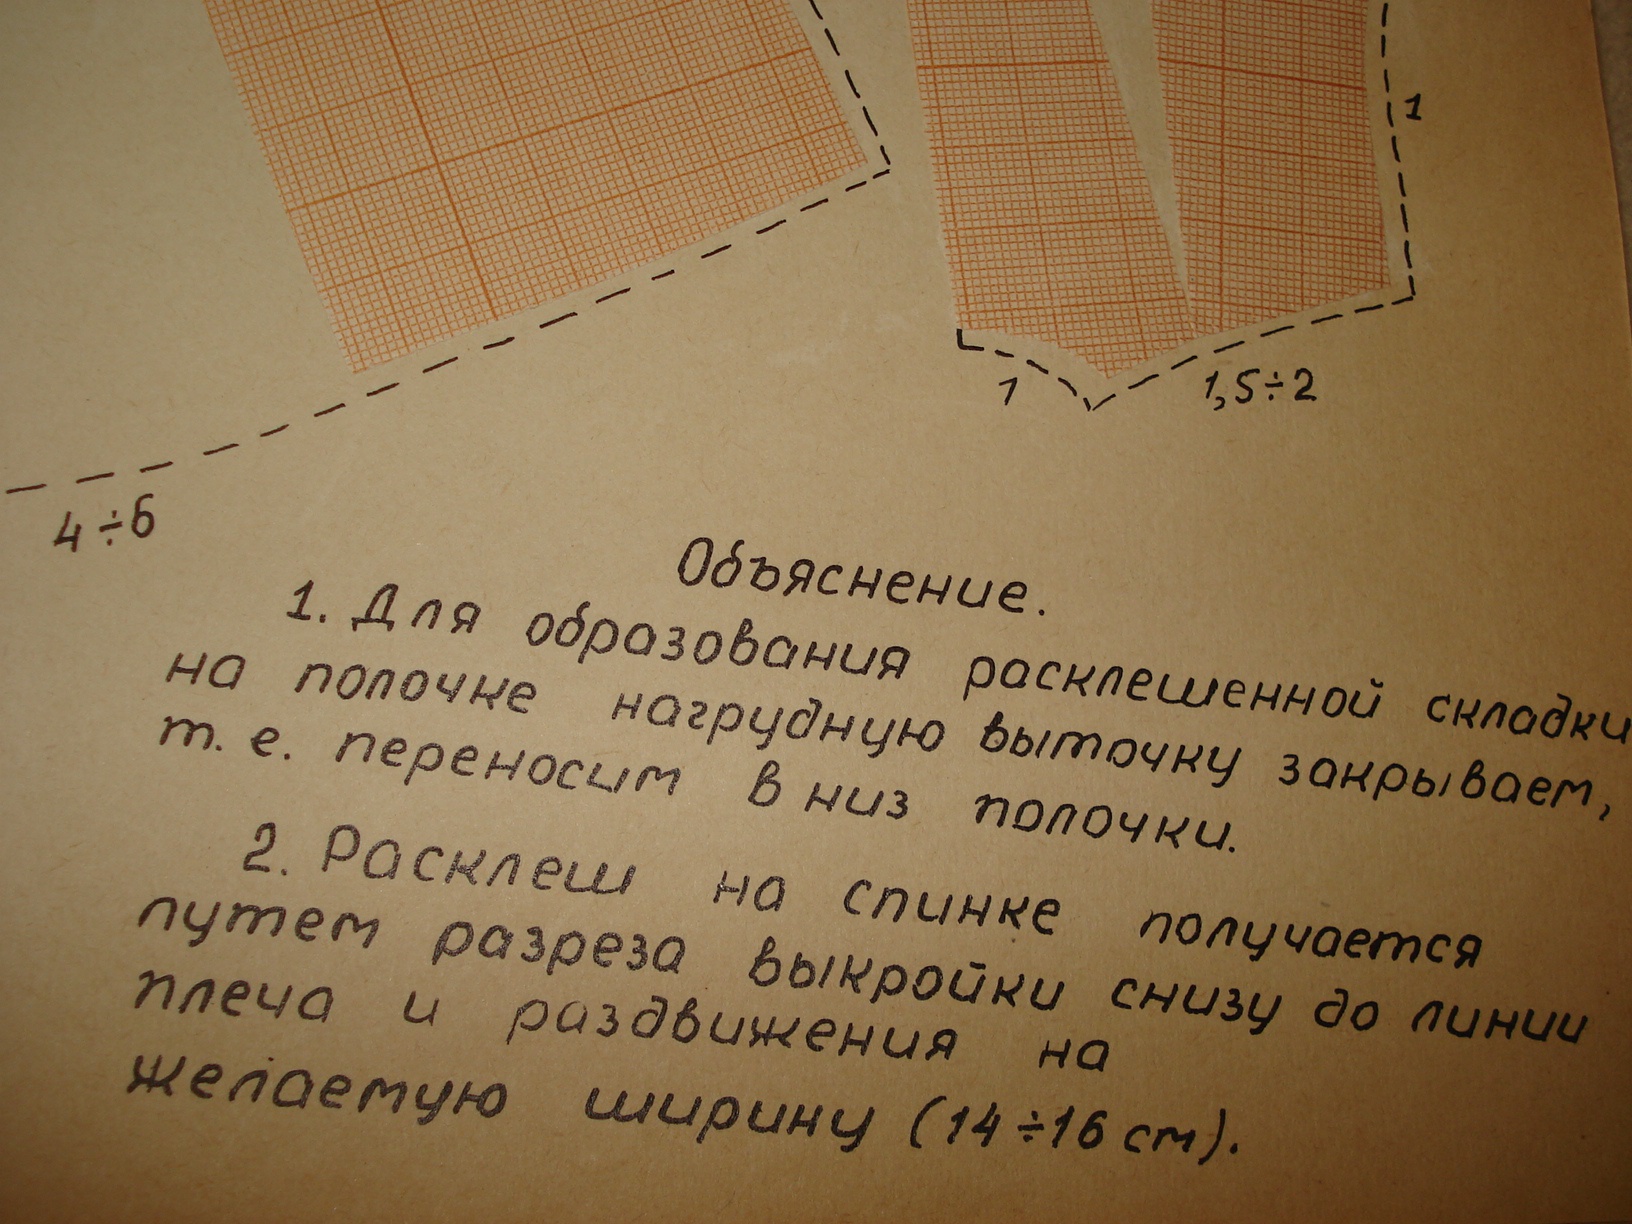 1
1
1,5÷2
4÷6
Объяснение.
1. Для образования расклешенной складки
на полочке нагрудную выточку закрываем,
т. е. переносим в низ полочки.
2. Расклеш на спинке получается
путем разреза выкройки снизу до линии
плеча и раздвижения на
желаемую ширину (14÷16 см).